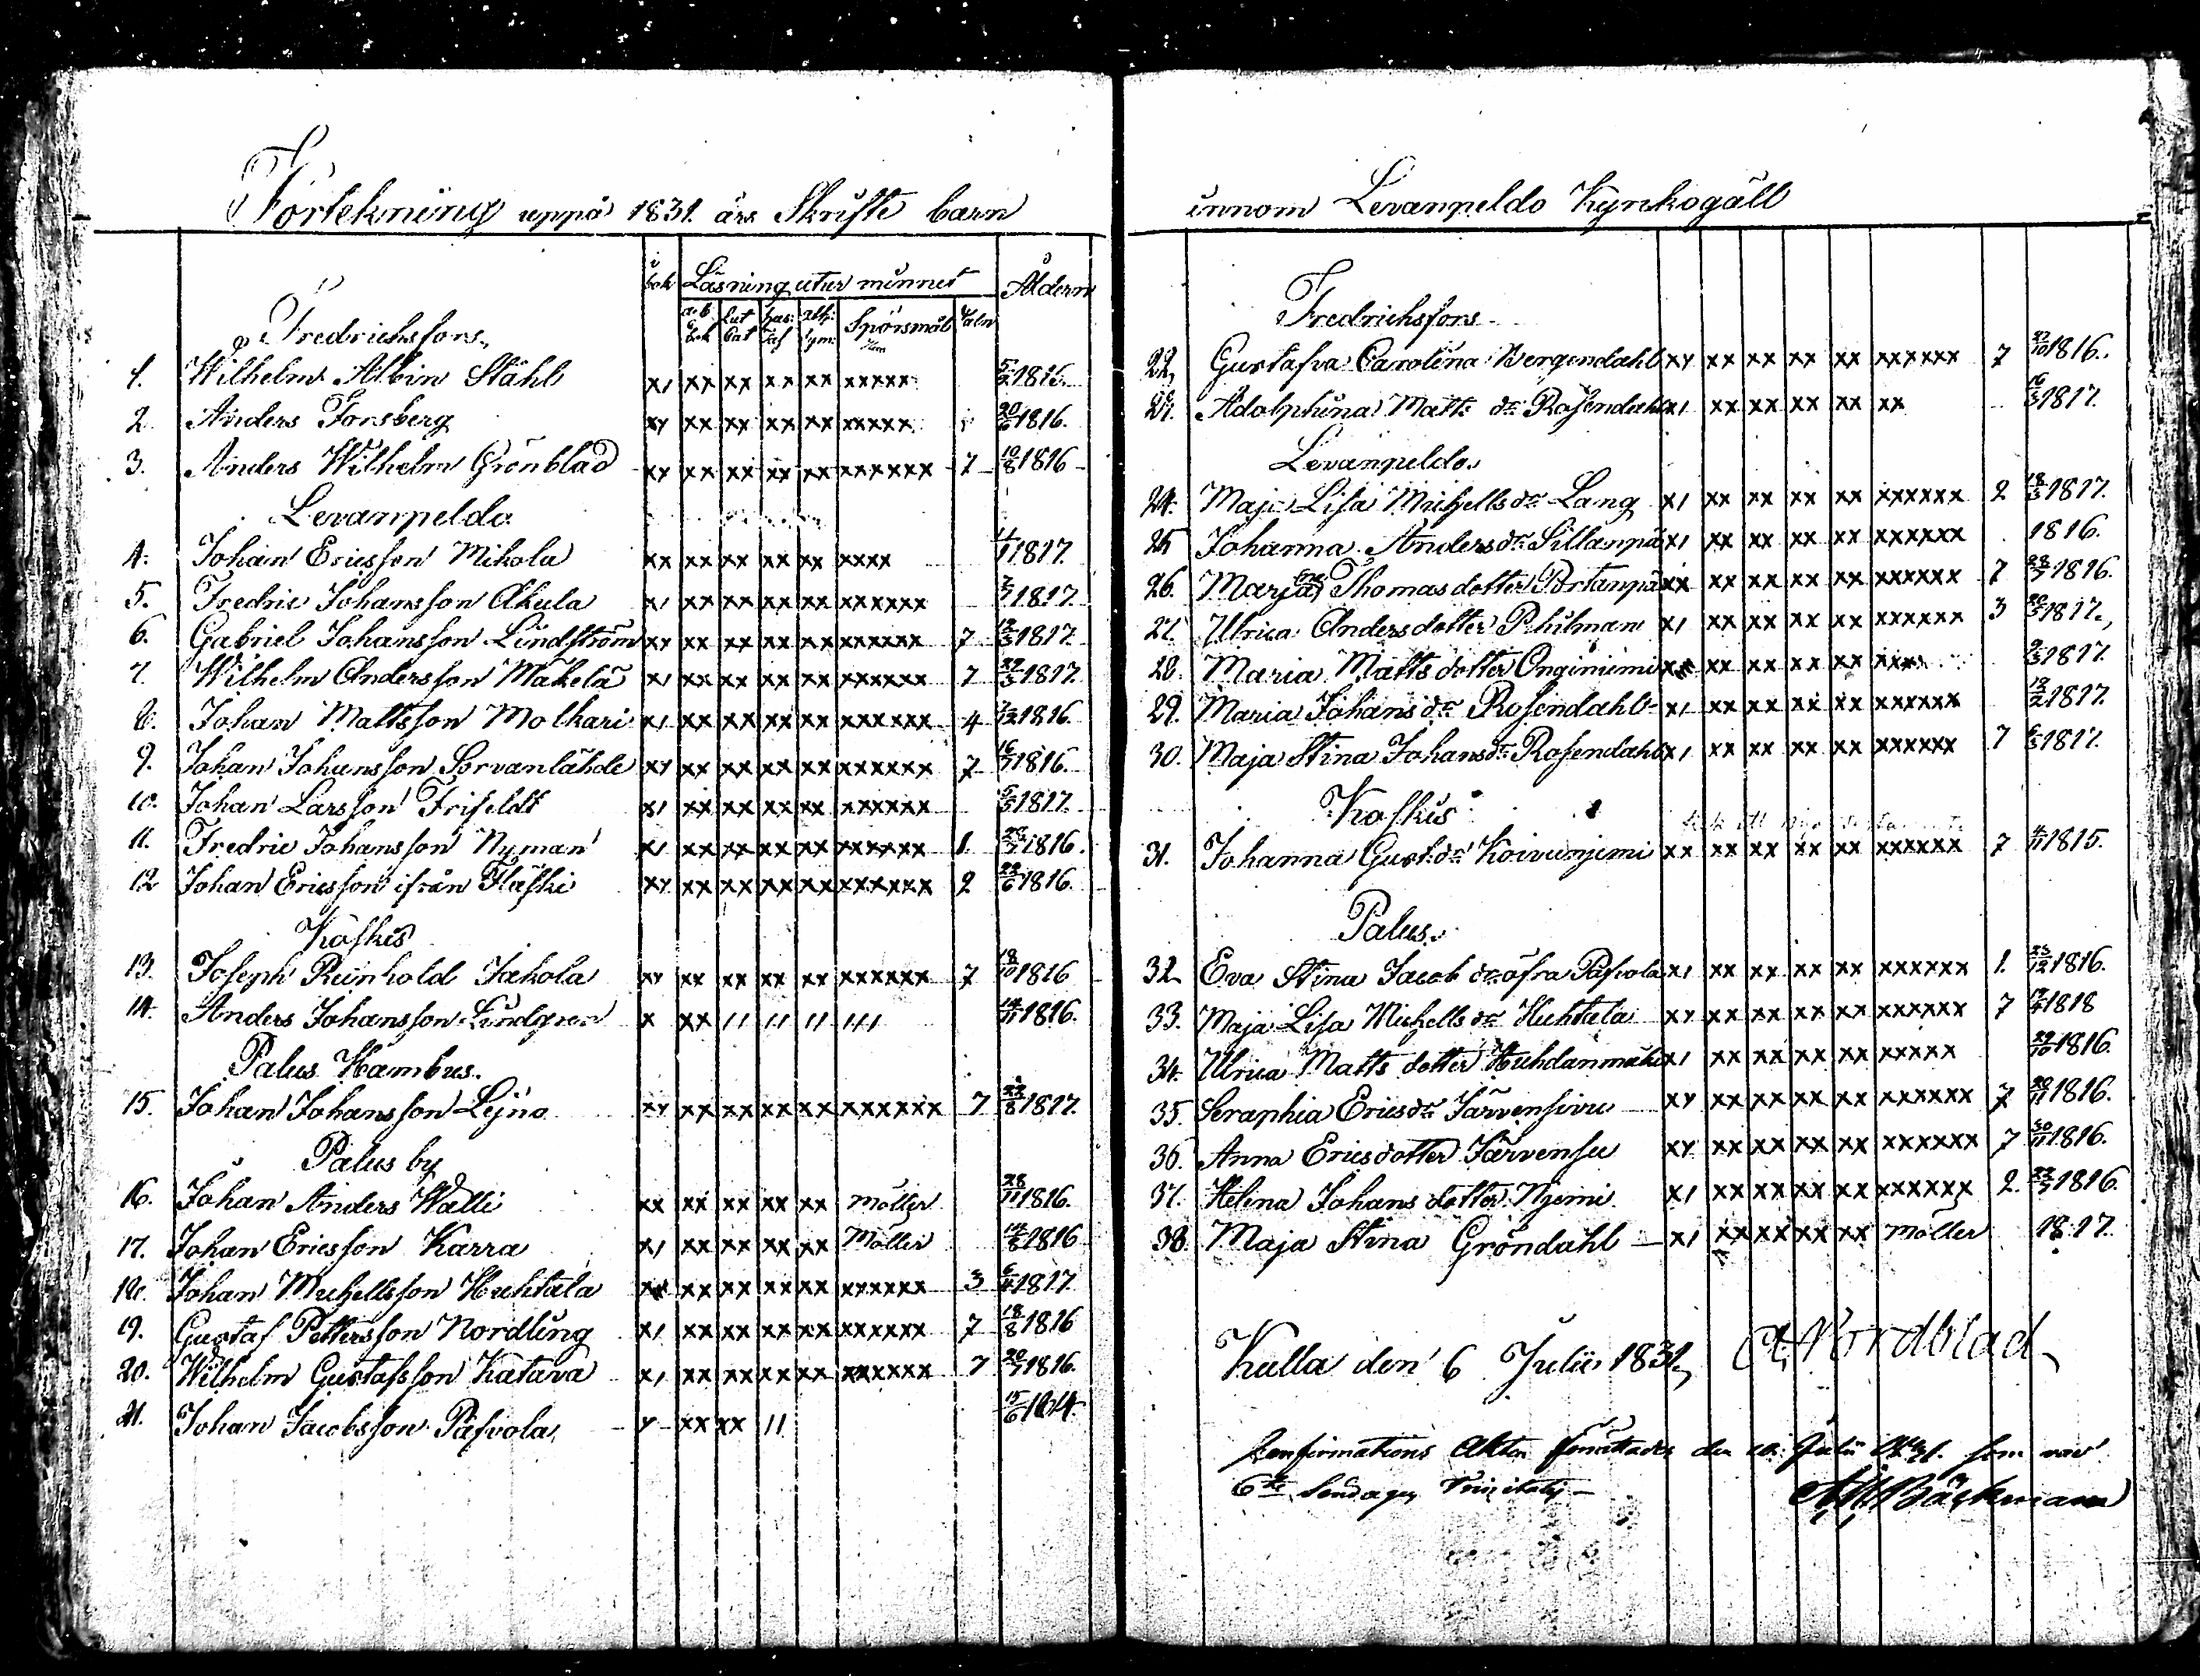 Förtekning uppå 1831. års Skrifte barn
i bok Läsning utur minnet Åldern
a:b bok Lut Cat hus: taf ath: sym: Spörsmål
Fredrichsfors.
1. Wilhelm Albin Ståhl x/ xx xx xx xx xxxxx 5/2 1816.
2. Anders Forsberg xy xx xx xx xx xxxxx 20/6 1816.
3. Anders Wilhelm Grönblad xy xx xx xx xx xxxxxx 7 10/8 1816
Levanpeldo
4. Johan Ericsson Mikola xx xx xx xx xx xxxx 1817.
5. Fredric Johansson Akula x/ xx xx xx xx xxxxxx 1817.
6. Gabriel Johansson Lindström xy xx xx xx xx xxxxxx 7 12/3 1817.
7. Wilhelm Andersson Mäkelä x/ xx xx xx xx xxxxxx 7 27/3 1817
8. Johan Mattsson Molkari x/ xx xx xx xx xxxxxx 4 7/12 1816.
9. Johan Johansson Sorvanlähde xy xx xx xx xx xxxxxx 7 1816.
10. Johan Larsson Frifeldt x/ xx xx xx xx xxxxxx 5/3 1817.
11. Fredric Johansson Nyman x/ xx xx xx xx xxxxxx 1. 1816.
12 Johan Ericsson ifrån Flaski xy xx xx xx xx xxxxxx 2 22/6 1816.
Koskis
13. Joseph Reinhold Jakola xy xx xx xx xx xxxxxx 7 18/10 1816
14. Anders Johansson Lindgren x xx // // // /// 14/11 1816.
Palus Hambus.
15. Johan Johansson Leino xy xx xx xx xx xxxxxx 7 23/8 1817
Palus by
16. Johan Anders Walli xx xx xx xx xx Möller 28/11 1816.
17. Johan Ericsson Karra x/ xx xx xx xx Möller 14/8 1816
18. Johan Michellsson Huhtala xx xx xx xx xx xxxxxx 3 6/4 1817.
19. Gustaf Pettersson Nordling x/ xx xx xx xx xxxxxx 7 18/8 1816
20. Wilhelm Gustafsson Katava x/ xx xx xx xx xxxxxx 7 20/7 1816.
21. Johan Jacobsson Päivola y xx xx // 15/6 1814.
innom Levanpeldo Kyrkogäll
Fredrichsfors
22. Gustafva Carolina Bergendahl xy xx xx xx xx xxxxxx 7 27/10 1816.
Adolphina Matts dr Rosendahl x/ xx xx xx xx xx 16/3 1817.
Levanpeldo.
24. Maja Lisa Michells dr Lang x/ xx xx xx xx xxxxxx 2 18/3 1817.
25 Johanna Anders dr Sillanpä x/ xx xx xx xx xxxxxx 1816.
26. Maria Thomas dotter Portanpä xx xx xx xx xx xxxxxx 7 1816.
27. Ulrica Anders dotter Pihlman x/ xx xx xx xx xxxxxx 3 1817.
28. Maria Matts dotter Onginiemi xx xx xx xx xx xxxx 9/3 1817.
29. Maria Johans dr Rosendahl x/ xx xx xx xx xxxxxx 12/2 1817.
30. Maja Stina Johans dr Rosendahl x/ xx xx xx xx xxxxxx 7 6/3 1817.
Koskis
31. Johanna Gust: dr Koivunjemi xx xx xx xx xx xxxxxx 7 1815.
Palus.
32 Eva Stina Jacob dr öfra Päivola x/ xx xx xx xx xxxxxx 1. 25/12 1816.
33. Maja Lisa Michells dr Huhtala xy xx xx xx xx xxxxxx 7 1818
34. Ulrica Matts dotter Huhdanmäki x/ xx xx xx xx xxxxx 29/10 1816.
35. Seraphia Erics dr Järvensivu xy xx xx xx xx xxxxxx 7 20/11 1816.
36. Anna Ericsdotter Järvensu xy xx xx xx xx xxxxxx 7 30/11 1816.
37. Helena Johans dotter Njemi x/ xx xx xx xx xxxxxx 2. 1816.
38. Maja Stina Gröndahl x/ xx xx xx xx Möller 1817.
Kulla den 6 Julii 1831. A. Nordblad
Confirmations Akten den 10. Julii 1831. som var
6te Söndagen Trinitatis
Bäckman